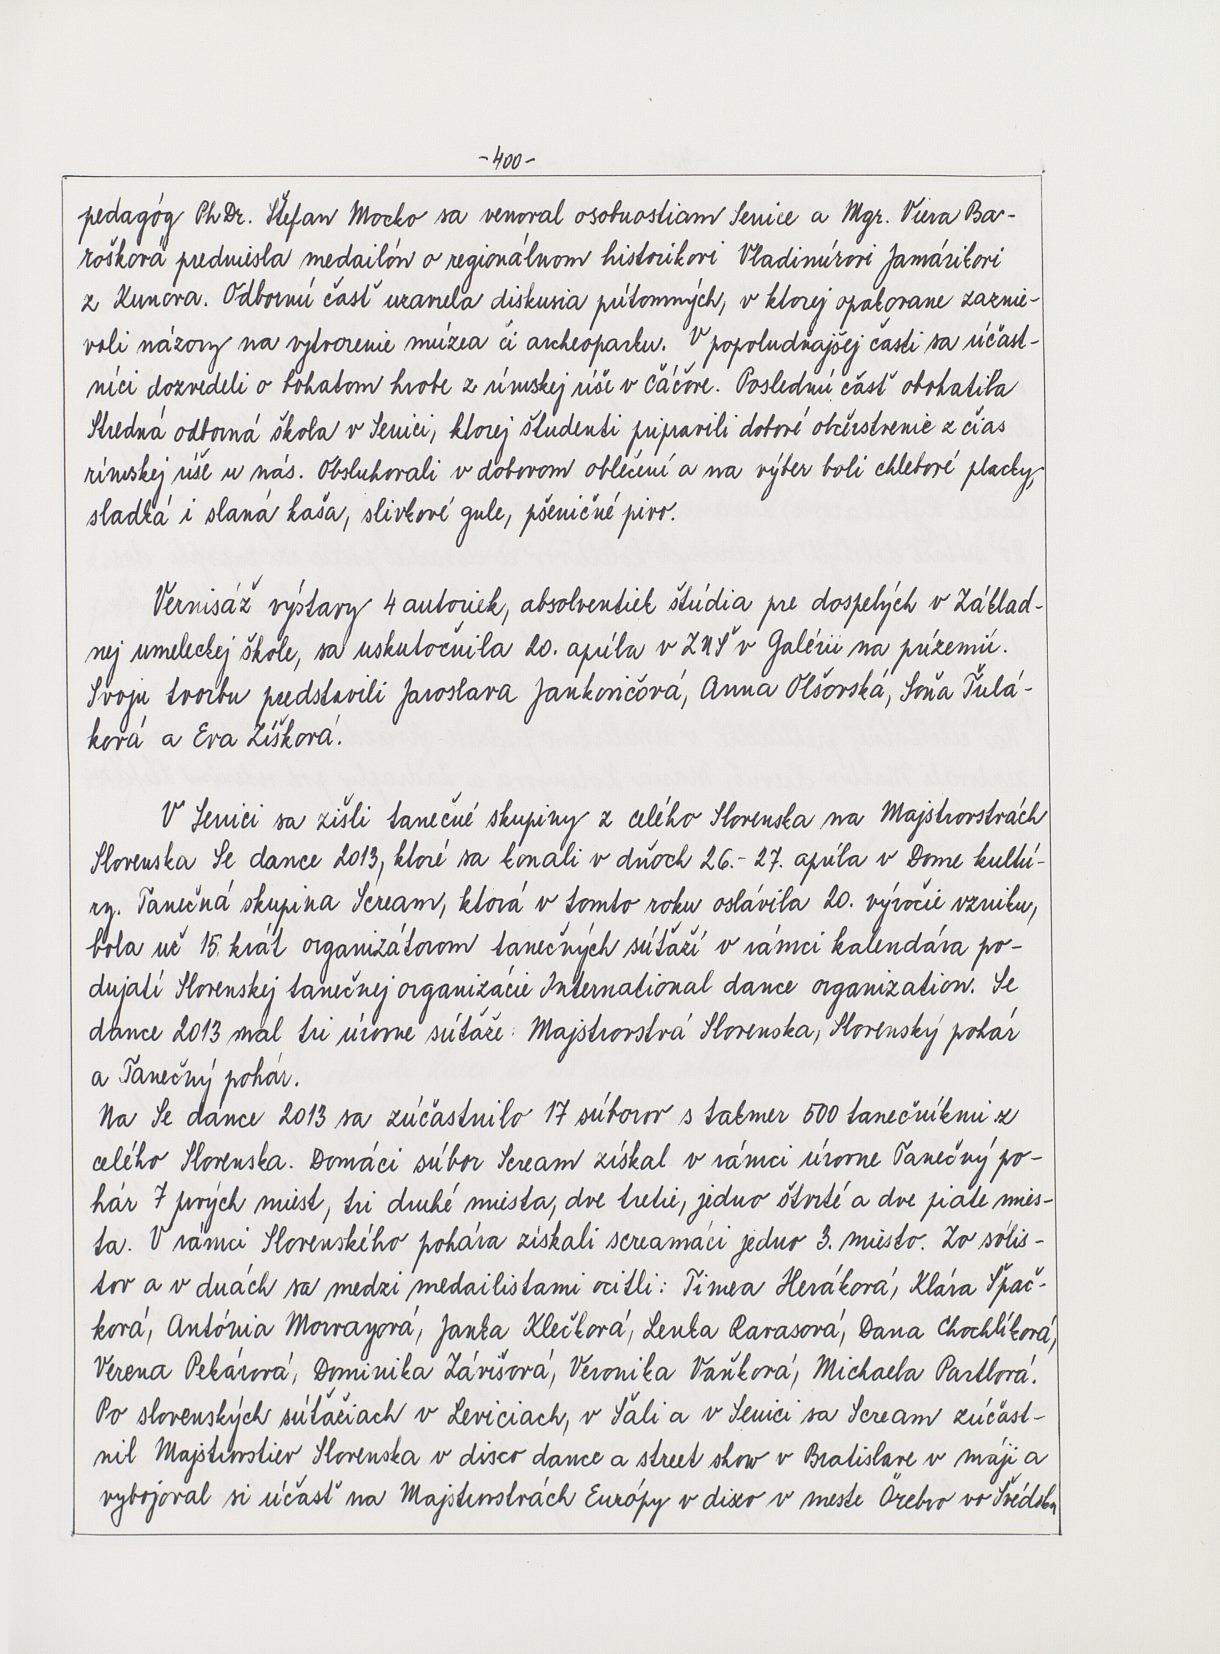 -400-
pedagóg PhDr. Štefan Mocko sa venoval osobnostiam Senice a Mgr. Viera Ba-
rošková predniesla medailón o regionálnom historikovi Vladimírovi Jamárikovi
z Kunova. Odbornú časť uzavrela diskusia prítomných, v ktorej opakovane zaznie-
vali názory na vytvorenie múzea či archeoparku. V popoludňajšej časti sa účast-
níci dozvedeli o bohatom hrobe z rímskej ríše v Čáčove. Poslednú časť obohatila
Stredná odborná škola v Senici, ktorej študenti pripravili dobové občerstvenie z čias
rímskej ríše u nás. Obsluhovali v dobovom oblečení a na výber boli chlebové placky,
sladká i slaná kaša, slivkové gule, pšeničné pivo.
Vernisáž výstavy 4 autoriek, absolventiek štúdia pre dospelých v Základ-
nej umeleckej škole, sa uskutočnila 20. apríla v ZUŠ v Galérii na prízemí.
Svoju tvorbu predstavili Jaroslava Jankovičová, Anna Olšovská, Soňa Ťulá-
ková a Eva Zíšková.
V Senici sa zišli tanečné skupiny z celého Slovenska na Majstrovstvách
Slovenska Se dance 2013, ktoré sa konali v dňoch 26.-27. apríla v Dome kultú-
ry. Tanečná skupina Scream, ktorá v tomto roku oslávila 20. výročie vzniku,
bola už 15. krát organizátorom tanečných súťaží v rámci kalendára po-
dujatí Slovenskej tanečnej organizácie International dance organization. Se
dance 2013 mal tri úrovne súťaže: Majstrovstvá Slovenska, Slovenský pohár
a Tanečný pohár.
Na Se dance 2013 sa zúčastnilo 17 súborov s takmer 500 tanečníkmi z
celého Slovenska. Domáci súbor Scream získal v rámci úrovne Tanečný po-
hár 7 prvých miest, tri druhé miesta, dve tretie, jedno štvrté a dve piate mies-
ta. V rámci Slovenského pohára získali screamáci jedno 3. miesto. Zo sólis-
tov a v duách sa medzi medailistami ocitli: Timea Heráková, Klára Špač-
ková, Antónia Morrayová, Janka Klečková, Lenka Karasová, Dana Chochlíková,
Verena Pekárová, Dominika Závišová, Veronika Vaňková, Michaela Partlová.
Po slovenských súťažiach v Leviciach, v Šali a v Senici sa Scream zúčast-
nil Majstrovstiev Slovenska v disco dance a street show v Bratislave v máji a
vybojoval si účasť na Majstrovstvách Európy v disco v meste Örebro vo Švédsku